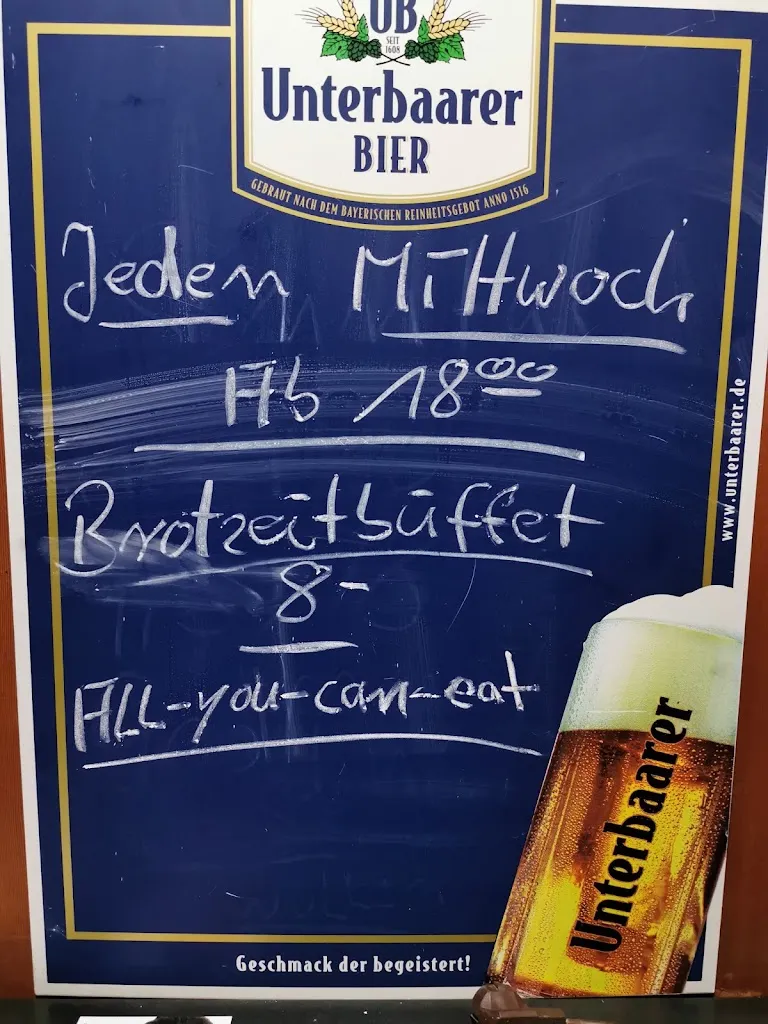 UB
SEIT
1608
Unterbaarer
BIER
GEBRAUT NACH DEM BAYERISCHEN REINHEITSGEBOT ANNO 1516
Jeden Mittwoch
Ab 18⁰⁰
Brotzeitbüffet
8-
ALL-you-can-eat
www.unterbaarer.de
Unterbaarer
Geschmack der begeistert!